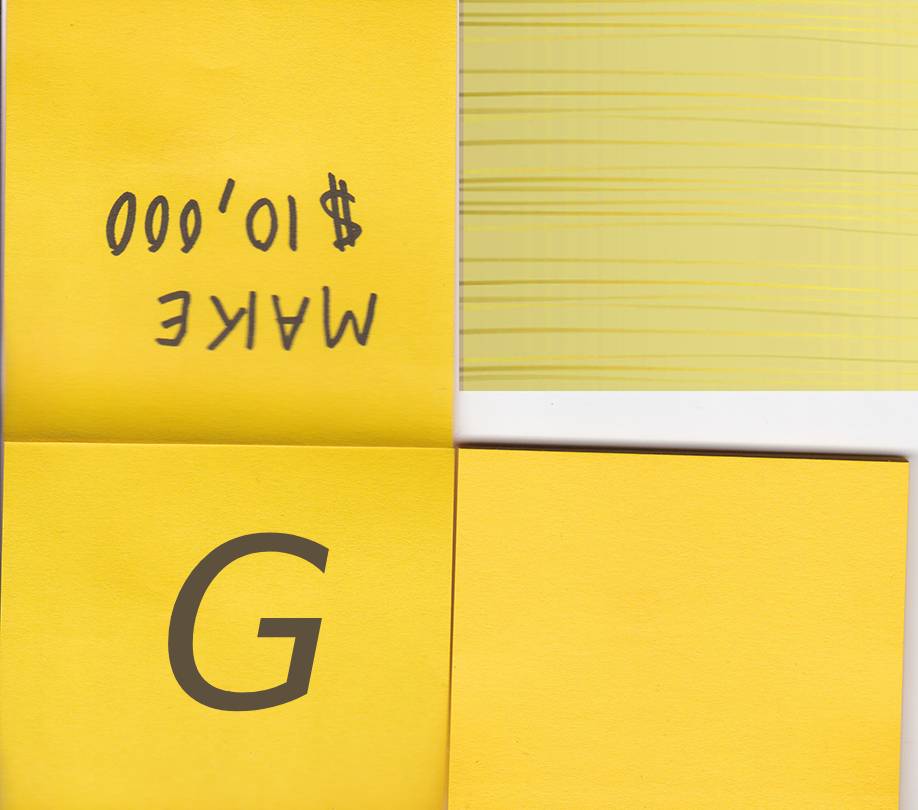 MAKE
$10,000
G